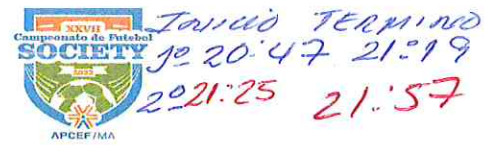 XXVII
Campeonato de Futebol
SOCIETY
2023
APCEF/MA
Início TERMINO
1º 20:47 21:19
2º 21:25 21:57